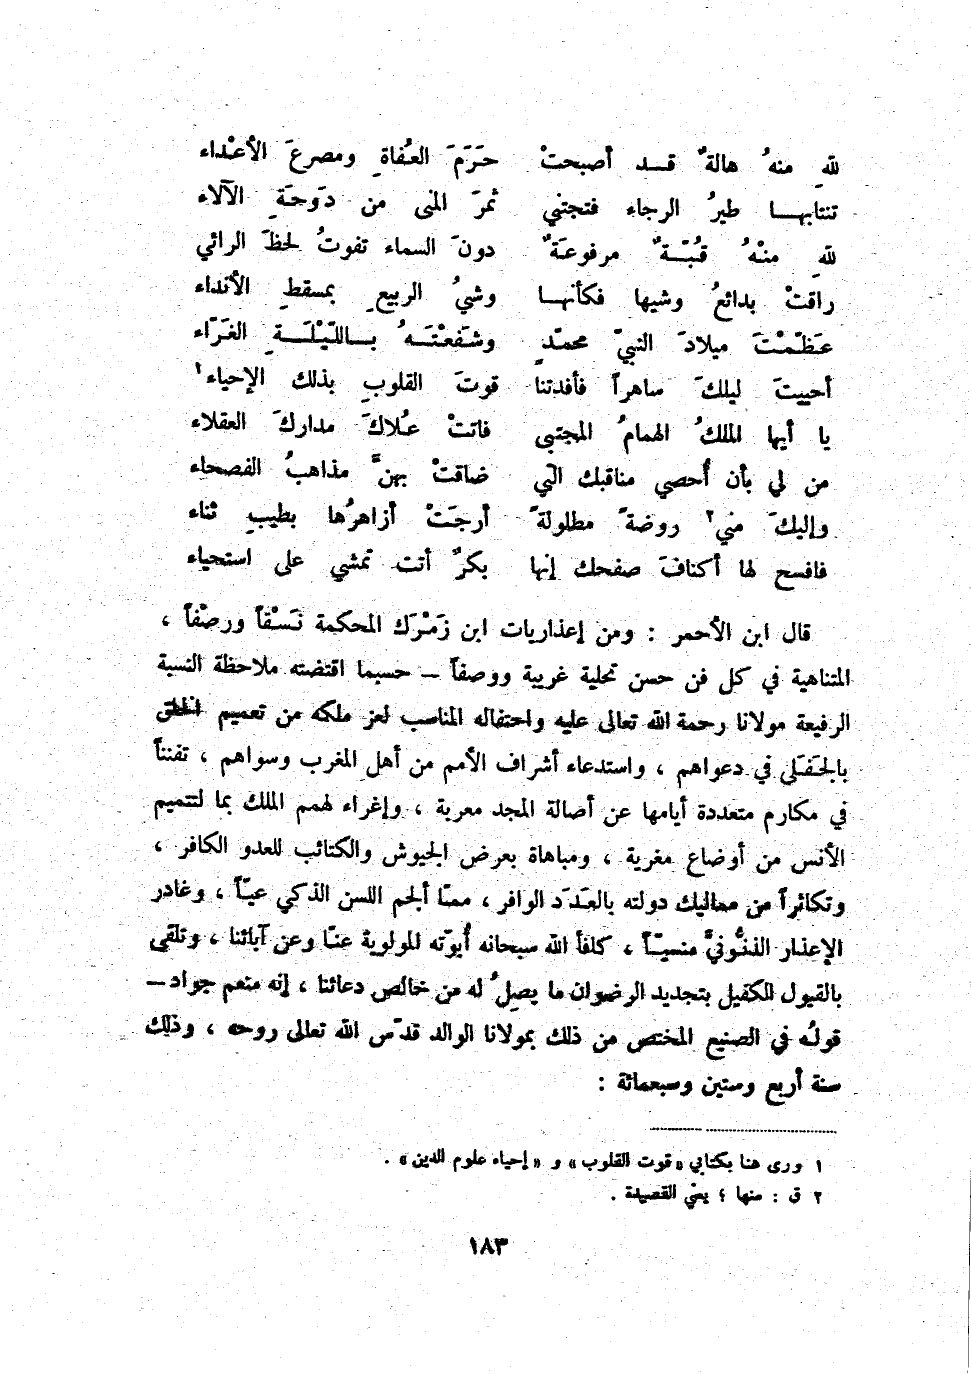 للهِ منهُ هالةٌ قـد أصبحتْ حَرَمَ العُفاةِ ومصرعَ الأعْداء
تنتابهـا طيرُ الرجاء فتجتني ثمرَ المنى من دَوحَةِ الآلاء
للهِ منْهُ قُبّـةٌ مرفوعَةٌ دونَ السماء تفوتُ لحظَ الرائي
راقتْ بدائعُ وشيها فكأنهـا وشيُ الربيعِ بمسقطِ الأنداء
عَظّمْتَ ميلادَ النبيّ محمّدٍ وشفعْتَـهُ بـاللّيْلَـةِ الغَرّاء
أحييتَ ليلكَ ساهراً فأفدتنا قوتَ القلوبِ بذلك الإحياء١
يا أيها الملكُ الهمامُ المجتبي فاتتْ عُلاكَ مداركَ العقلاء
من لي بأن أُحصي مناقبك التي ضاقتْ بهنَّ مذاهبُ الفصحاء
وإليكَ مني٢ روضةً مطلولةً أرجَتْ أزاهرُها بطيبِ ثناء
فافسح لها أكنافَ صفحك إنها بكرٌ أتت تمشي على استحياء
قال ابن الأحمر : ومن إعذاريات ابن زَمْرَك المحكمة نَسْقاً ورصْفاً ،
المتناهية في كل فن حسن تحلية غريبة ووصفاً – حسبما اقتضته ملاحظة النسبة
الرفيعة مولانا رحمة الله تعالى عليه واحتفاله المناسب لعز ملكه من تعميم الخلق
بالجَفَلى في دعواهم ، واستدعاء أشراف الأمم من أهل المغرب وسواهم ، تفنناً
في مكارم متعددة أيامها عن أصالة المجد معربة ، وإغراء لهمم الملك بما لتتميم
الأنس من أوضاع مغربة ، ومباهاة بعرض الجيوش والكتائب للعدو الكافر ،
وتكاثراً من مماليك دولته بالعَدَد الوافر ، ممّا ألجم اللسن الذكي عيّاً ، وغادر
الإعذار الذنّونيَّ منسيّاً ، كافأ الله سبحانه أُبوّته المولوية عنّا وعن آبائنا ، وتلقى
بالقبول الكفيل بتجديد الرضوان ما يصلُ له من خالص دعائنا ، إنه منعم جواد –
قولُه في الصنيع المختص من ذلك بمولانا الوالد قدّس الله تعالى روحه ، وذلك
سنة أربع وستين وسبعمائة :
١ ورى هنا بكتابي « قوت القلوب » و « إحياء علوم الدين » .
٢ ق : منها ؛ يعني القصيدة .
١٨٣